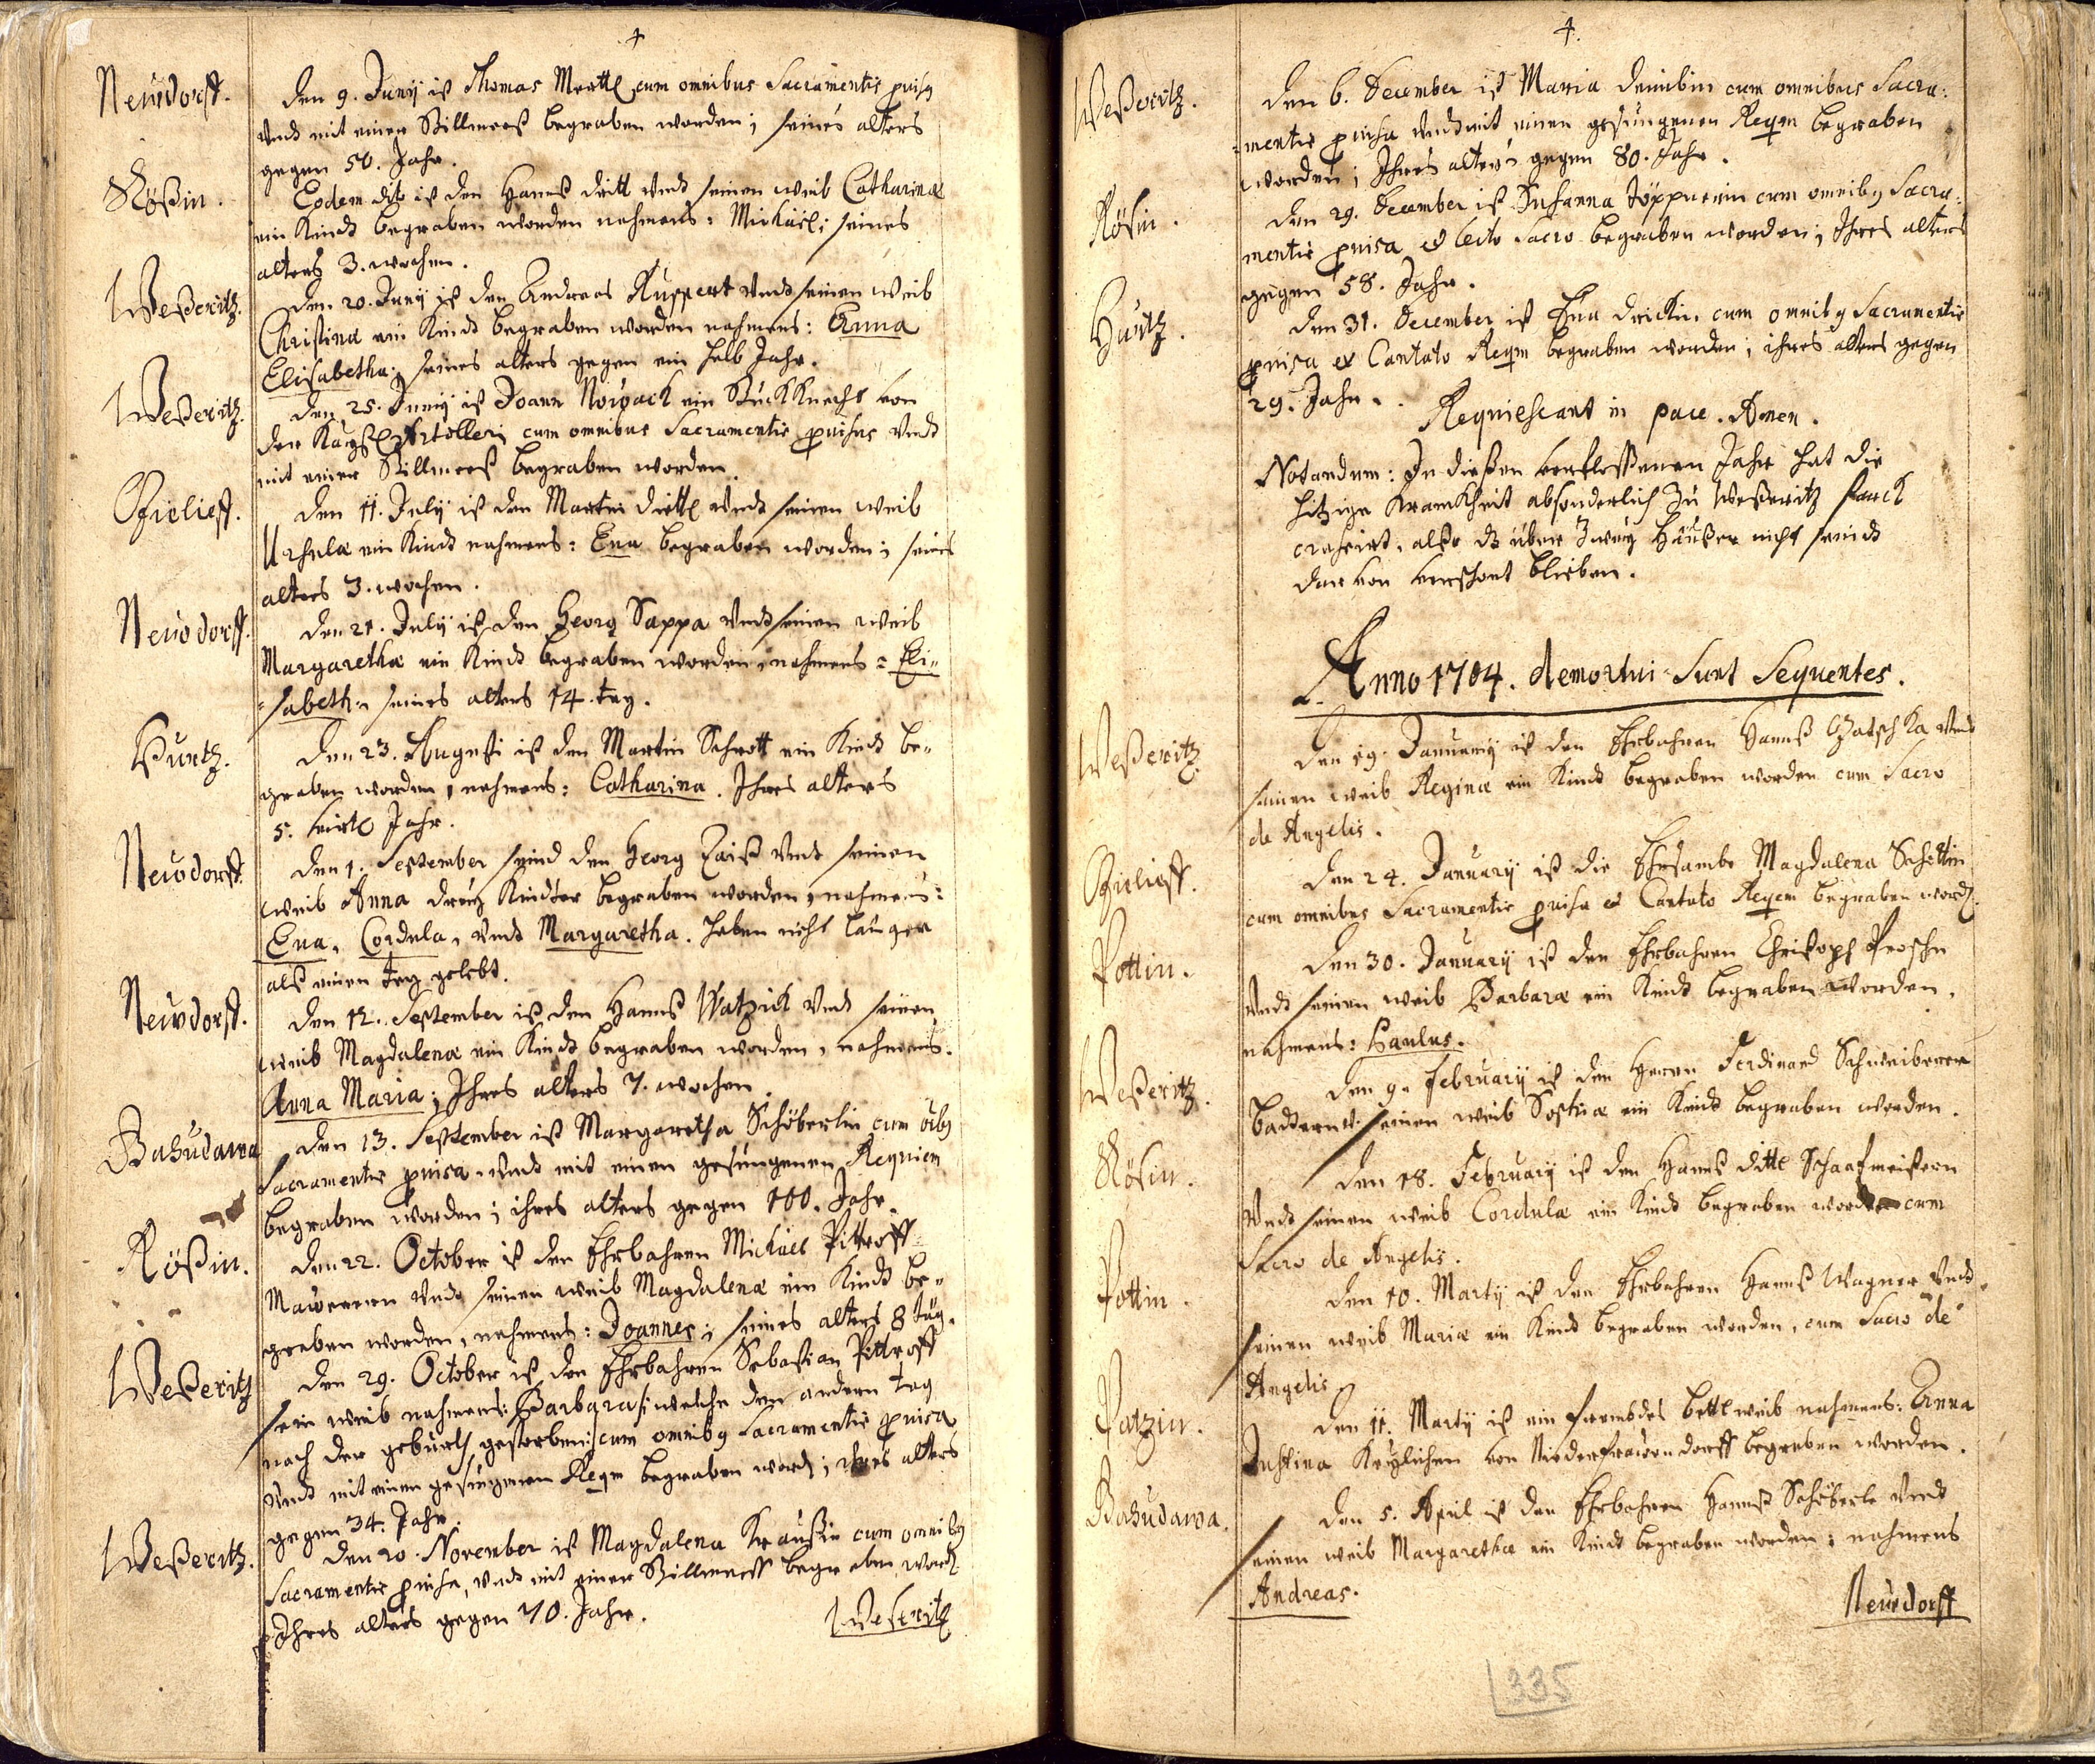 4
Neüdorff.
Den 9. Junÿ ist Thomas Mertl cum omnibus Sacramentis prouisus
Vndt mit einer Stillmeeß begraben worden; seines alters
gegen 50. Jahr.
Rößin.
Eodem die ist den Hanß Vndt seinen weib Catharinæ
ein Kindt begraben worden nahmens: Michäel; seines
alters 3. wochen.
Weßeritz.
Den 20. Junÿ ist den Andreas Ruppert Vndt seinen weib
Christinæ ein Kindt begraben worden nahmens: Anna
Elisabetha; seines alters gegen ein halb Jahr.
Weßeritz.
Den 25. Junÿ ist Joann Nowack ein Stuckknecht von
der Artolleri cum omnibus Sacramentis prouisus Vndt
mit einer Stillmeeß begraben worden.
Den 11. Julÿ ist den Martin Vndt seinen weib
Ursulæ ein Kindt nahmens: Eua begraben worden; seines
alters 3. wochen.
Neudorff.
Den 21. Julÿ ist den Georg Sappa Vndt seinen weib
Margarethæ ein Kindt begraben worden, nahmens: Eli=
=sabeth. seines alters 14. tag.
Hurtz.
Den 23. Augusti ist den Martin Schrott ein Kindt be=
graben worden, nahmens: Catharina. Ihres alters
5. virtl Jahr.
Neudorff.
Den 1. September seind den Georg Zaiß Vndt seinen
weib Anna dreÿ Kindter begraben worden, nahmens:
Eua, Cordula, Vndt Margaretha. haben nicht länger
alß einen tag gelebt.
Neüdorff.
Den 12. September ist den Hannß Watzick Vndt seinen
weib Magdalenæ ein Kindt begraben worden, nahmens.
Anna Maria; Ihres alters 7. wochen.
Bahudawa
Den 13. September ist Margaretha Schöberlin cum oibus
Sacramentis prouisa Vndt mit einen gesungenen Requiem
begraben worden; ihres alters gegen 100. Jahr.
Rößin.
Den 22. October ist den Ehrbahren Michäel Pittroff
Maurern Vndt seinen weib Magdalenæ ein Kindt be=
graben worden, nahmens: Joannes; seines alters 8 täg.
Weßeritz
Den 29. October ist den Ehrbahren Sebastian Pittroff
sein weib nahmens: Barbara /: welche den andern tag
nach der geburth gestorben :/ cum omnibus Sacramentis prouisa
Vndt mit einen gesungenen Reqm begraben word; ihres alters
gegen 34. Jahr.
Weßeritz.
Den 20. November ist Magdalena Kraußin cum omnibus
Sacramentis prouisa, Vndt mit einer Stillmeeß begraben word
Ihres alters gegen 70. Jahr.
Weseritz
4.
Weßeritz.
Den 6. December ist Maria cum omnibus Sacra:
:mentis prouisa Vndt mit einen gesungenen Reqm begraben
worden; Ihres alters gegen 80. Jahr.
Rösin.
Den 29. December ist Susanna Töppnerin cum omnibus Sacra:
mentis prouisa et lecto Sacro begraben worden; Ihres alters
gegen 58. Jahr.
Hurtz.
Den 31. December ist Eua cum omnibus Sacramentis
prouisa et Cantato Reqm begraben worden; ihres alters gegen
29. Jahr.
Requiescant in pace. Amen.
Notandum: In dießen verflossenen Jahr hat die
hitzige Krankheit absonderlich zu Weßeritz starck
crasirt, alßo dz über Zweÿ Häußer nicht seindt
dar von verschont blieben.
Anno 1704. demortui Sunt Sequentes.
Weßeritz.
Den 19. Januarÿ ist den Ehrbahren Hannß Vndt
seinen weib Reginæ ein Kindt begraben worden cum Sacro
de Angelis.
Den 24. Januarÿ ist die Ehrsambe Magdalena
cum omnibus Sacramentis prouisa et Cantato Reqem begraben word.
Pottin.
Den 30. Januarÿ ist den Ehrbahren Christoph
Vndt seinen weib Barbaræ ein Kindt begraben worden.
nahmens: Paulus.
Weßeritz.
Den 9. Februarÿ ist den Herrn Ferdinand
Baddern V. seinen weib ein Kindt begraben worden.
Rösin.
Den 18. Februarÿ ist den Hannß Schaafmeistern
Vndt seinen weib Cordulæ ein Kindt begraben worden cum
Sacro de Angelis.
Pottin.
Den 10. Martÿ ist den Ehrbahren Hannß Wagner Vndt
seinen weib Mariæ ein Kindt begraben worden, cum Sacro de
Angelis
Potzin.
Den 11. Martÿ ist ein frembdes bettlweib nahmens: Anna
Justina von begraben worden.
Bahudawa.
Den 5. April ist den Ehrbahren Hannß Schöberle Vndt
seinen weib Margarethæ ein Kindt begraben worden; nahmens
Andreas.
Neudorff
335